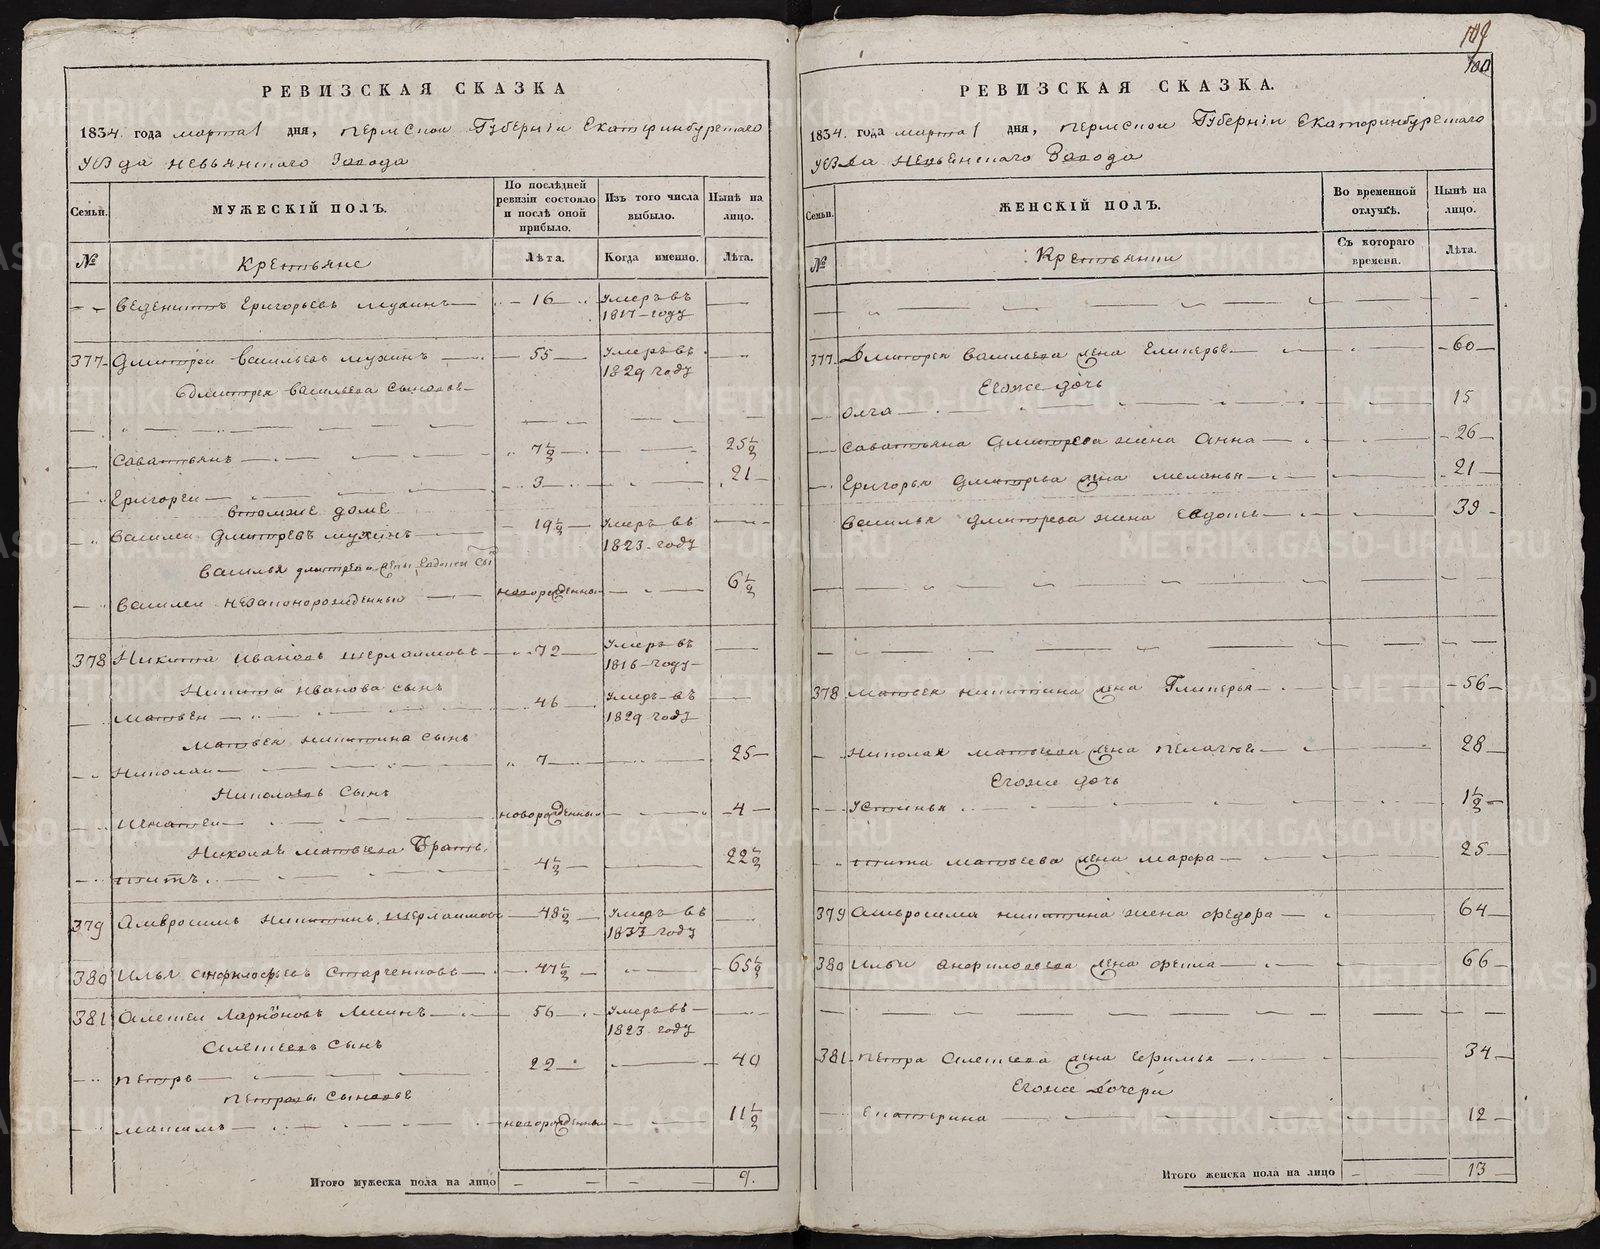 109
100
РЕВИЗСКАЯ СКАЗКА
1834. года марта 1 дня, пермской Губерніи Екатеринбургскаго
уѣзда невьянскаго Завода
Семьи.
МУЖЕСКІЙ ПОЛЪ.
По послѣдней ревизіи состояло и послѣ оной прибыло.
Изъ того числа выбыло.
Нынѣ на лицо.
№
Крестьяне
Лѣта.
Когда именно.
Лѣта.
Веденихтъ Григорьевъ Мухинъ — 16 — Умеръ въ 1817 году
377 Дмитрей Васильевъ мухинъ — 55 — Умеръ въ 1829 году
Дмитрея Васильева Сыновья
Саватьянъ — 7½ — 25½
Григореи — 3 — 21
втомже доме
Василеи Дмитревъ мухинъ — 19½ — Умеръ въ 1823 году
Василья дмитрева жены
Василеи незаконорожденныи — новорожденныи — 6½
378 Никита Ивановъ Шерлаимовъ — 72 — Умеръ въ 1816 году
Никиты Иванова сынъ
Матвеи — 46 — Умеръ въ 1829 году
Матвея никитина сынъ
Николаи — 7 — 25
Николаевъ Сынъ
Игнатеи — новорожденныи — 4
Николая матвеева Братъ
Титъ — 4½ — 22½
379 Амвросимъ Никитинъ Шерлаимовъ — 48½ — Умеръ въ 1833 году
380 Илья Анфилофьевъ Старченковъ — 47½ — 65½
381 Алексеи Ларіоновъ Лисинъ — 56 — Умеръ въ 1823 году
Алексеевъ Сынъ
Петръ — 22 — 40
Петровы Сыновье
Максимъ — новорожденныи — 11½
Итого мужеска пола на лицо — 9.
РЕВИЗСКАЯ СКАЗКА.
1834. года марта 1 дня, пермской Губерніи Екатеринбургскаго
уѣзда Невьянскаго Завода
Семьи.
ЖЕНСКІЙ ПОЛЪ.
Во временной отлучкѣ.
Нынѣ на лицо.
№
Крестьянки
Съ котораго времени.
Лѣта.
377 Дмитрея Васильева жена Гликерья — 60
Егоже дочь
Олга — 15
Саватьяна Дмитрева жена Анна — 26
Григорья Дмитрева жена Меланья — 21
Василья Дмитрева жена Евдотья — 39
378 Матвея никитина жена Гликерья — 56
Николая матвеева жена Пелагея — 28
Егоже дочь
Устинья — 1½
Тита матвеева жена марфа — 25
379 Амвросима никитина жена Федора — 64
380 Ильи Анфилофьева жена Фекла — 66
381 Петра Алексеева жена Ефимья — 34
Егоже Дочери
Екатерина — 12
Итого женска пола на лицо — 13
METRIKI.GASO-URAL.RU